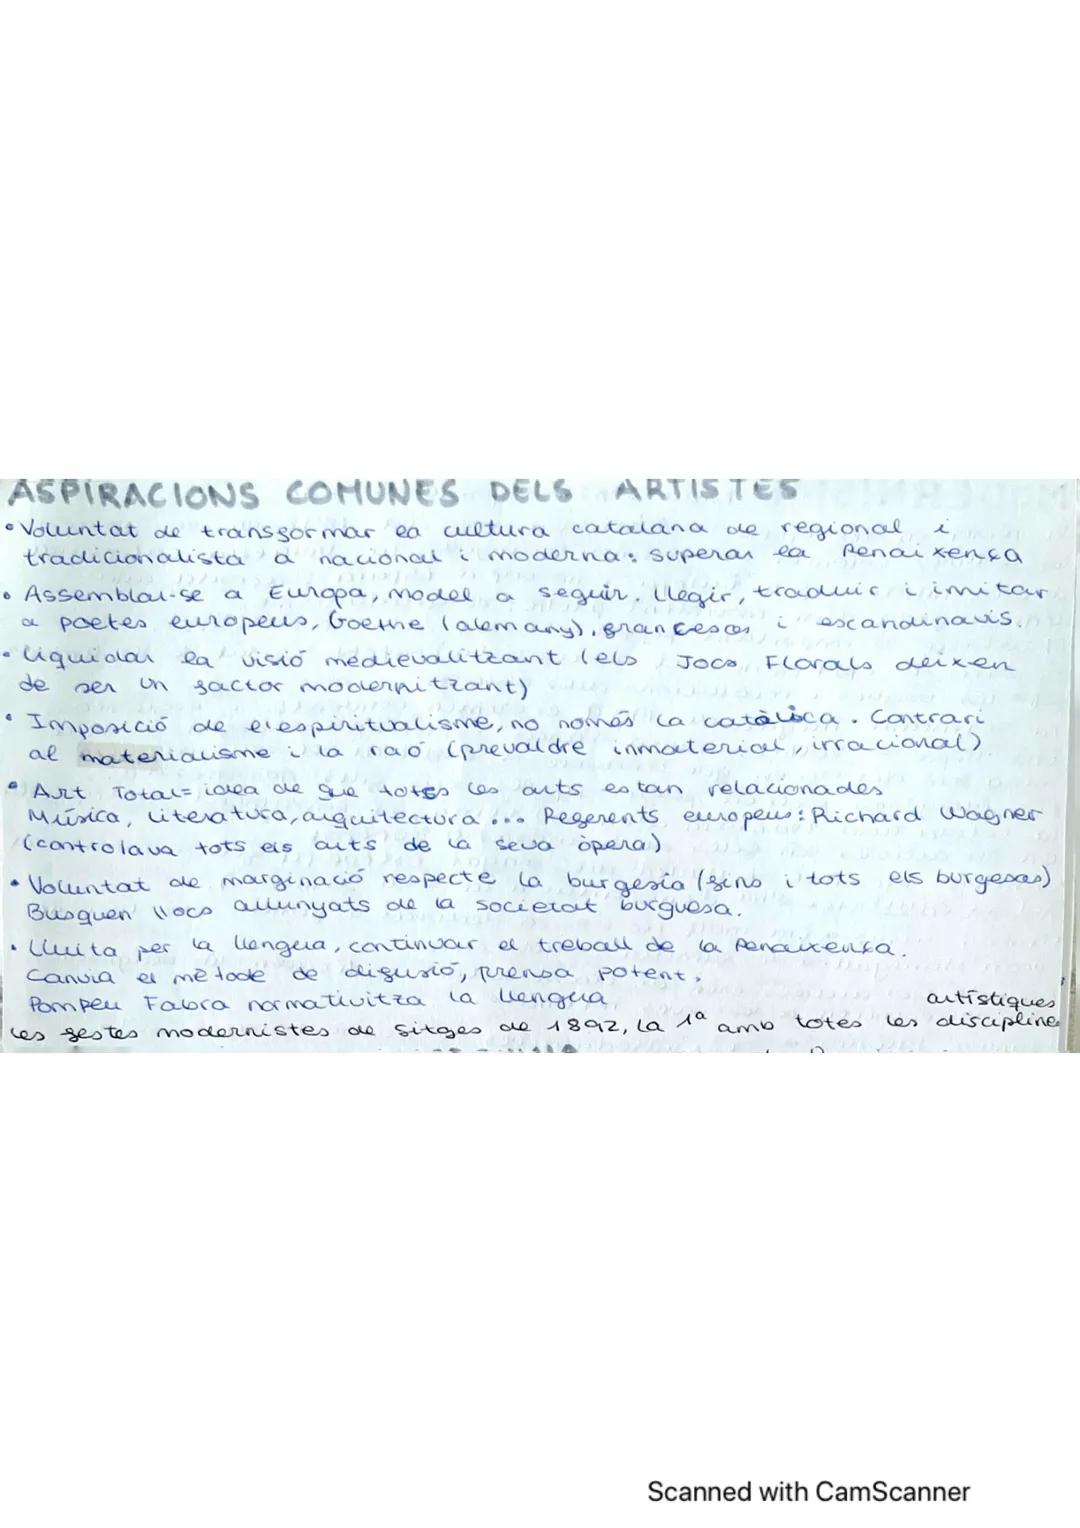 ASPIRACIONS COMUNES DELS ARTISTES
• Voluntat de transformar la cultura catalana de regional i
tradicionalista a nacional i moderna: superar la Renaixença
• Assemblar-se a Europa, model a seguir. Llegir, traduir i imitar
a poetes europeus, Goethe (alemany), francesos i escandinavis.
• Liquidar la visió medievalitzant (els Jocs Florals deixen
de ser un factor modernitzant)
• Imposició de l'espiritualisme, no només la catòlica. Contrari
al materialisme i la raó (prevaldre inmaterial, irracional)
• Art Total = idea de que totes les arts estan relacionades
Música, literatura, arquitectura... Referents europeus: Richard Wagner
(controlava tots els arts de la seva òpera)
• Voluntat de marginació respecte la burgesia (fins i tots els burgesos)
Busquen llocs allunyats de la societat burguesa.
• Lluita per la llengua, continuar el treball de la Renaixença.
Canvia el mètode de difusió, prensa potent,
Pompeu Fabra normativitza la llengua
artístiques
les festes modernistes de Sitges de 1892, la 1ª amb totes les discipline
Scanned with CamScanner